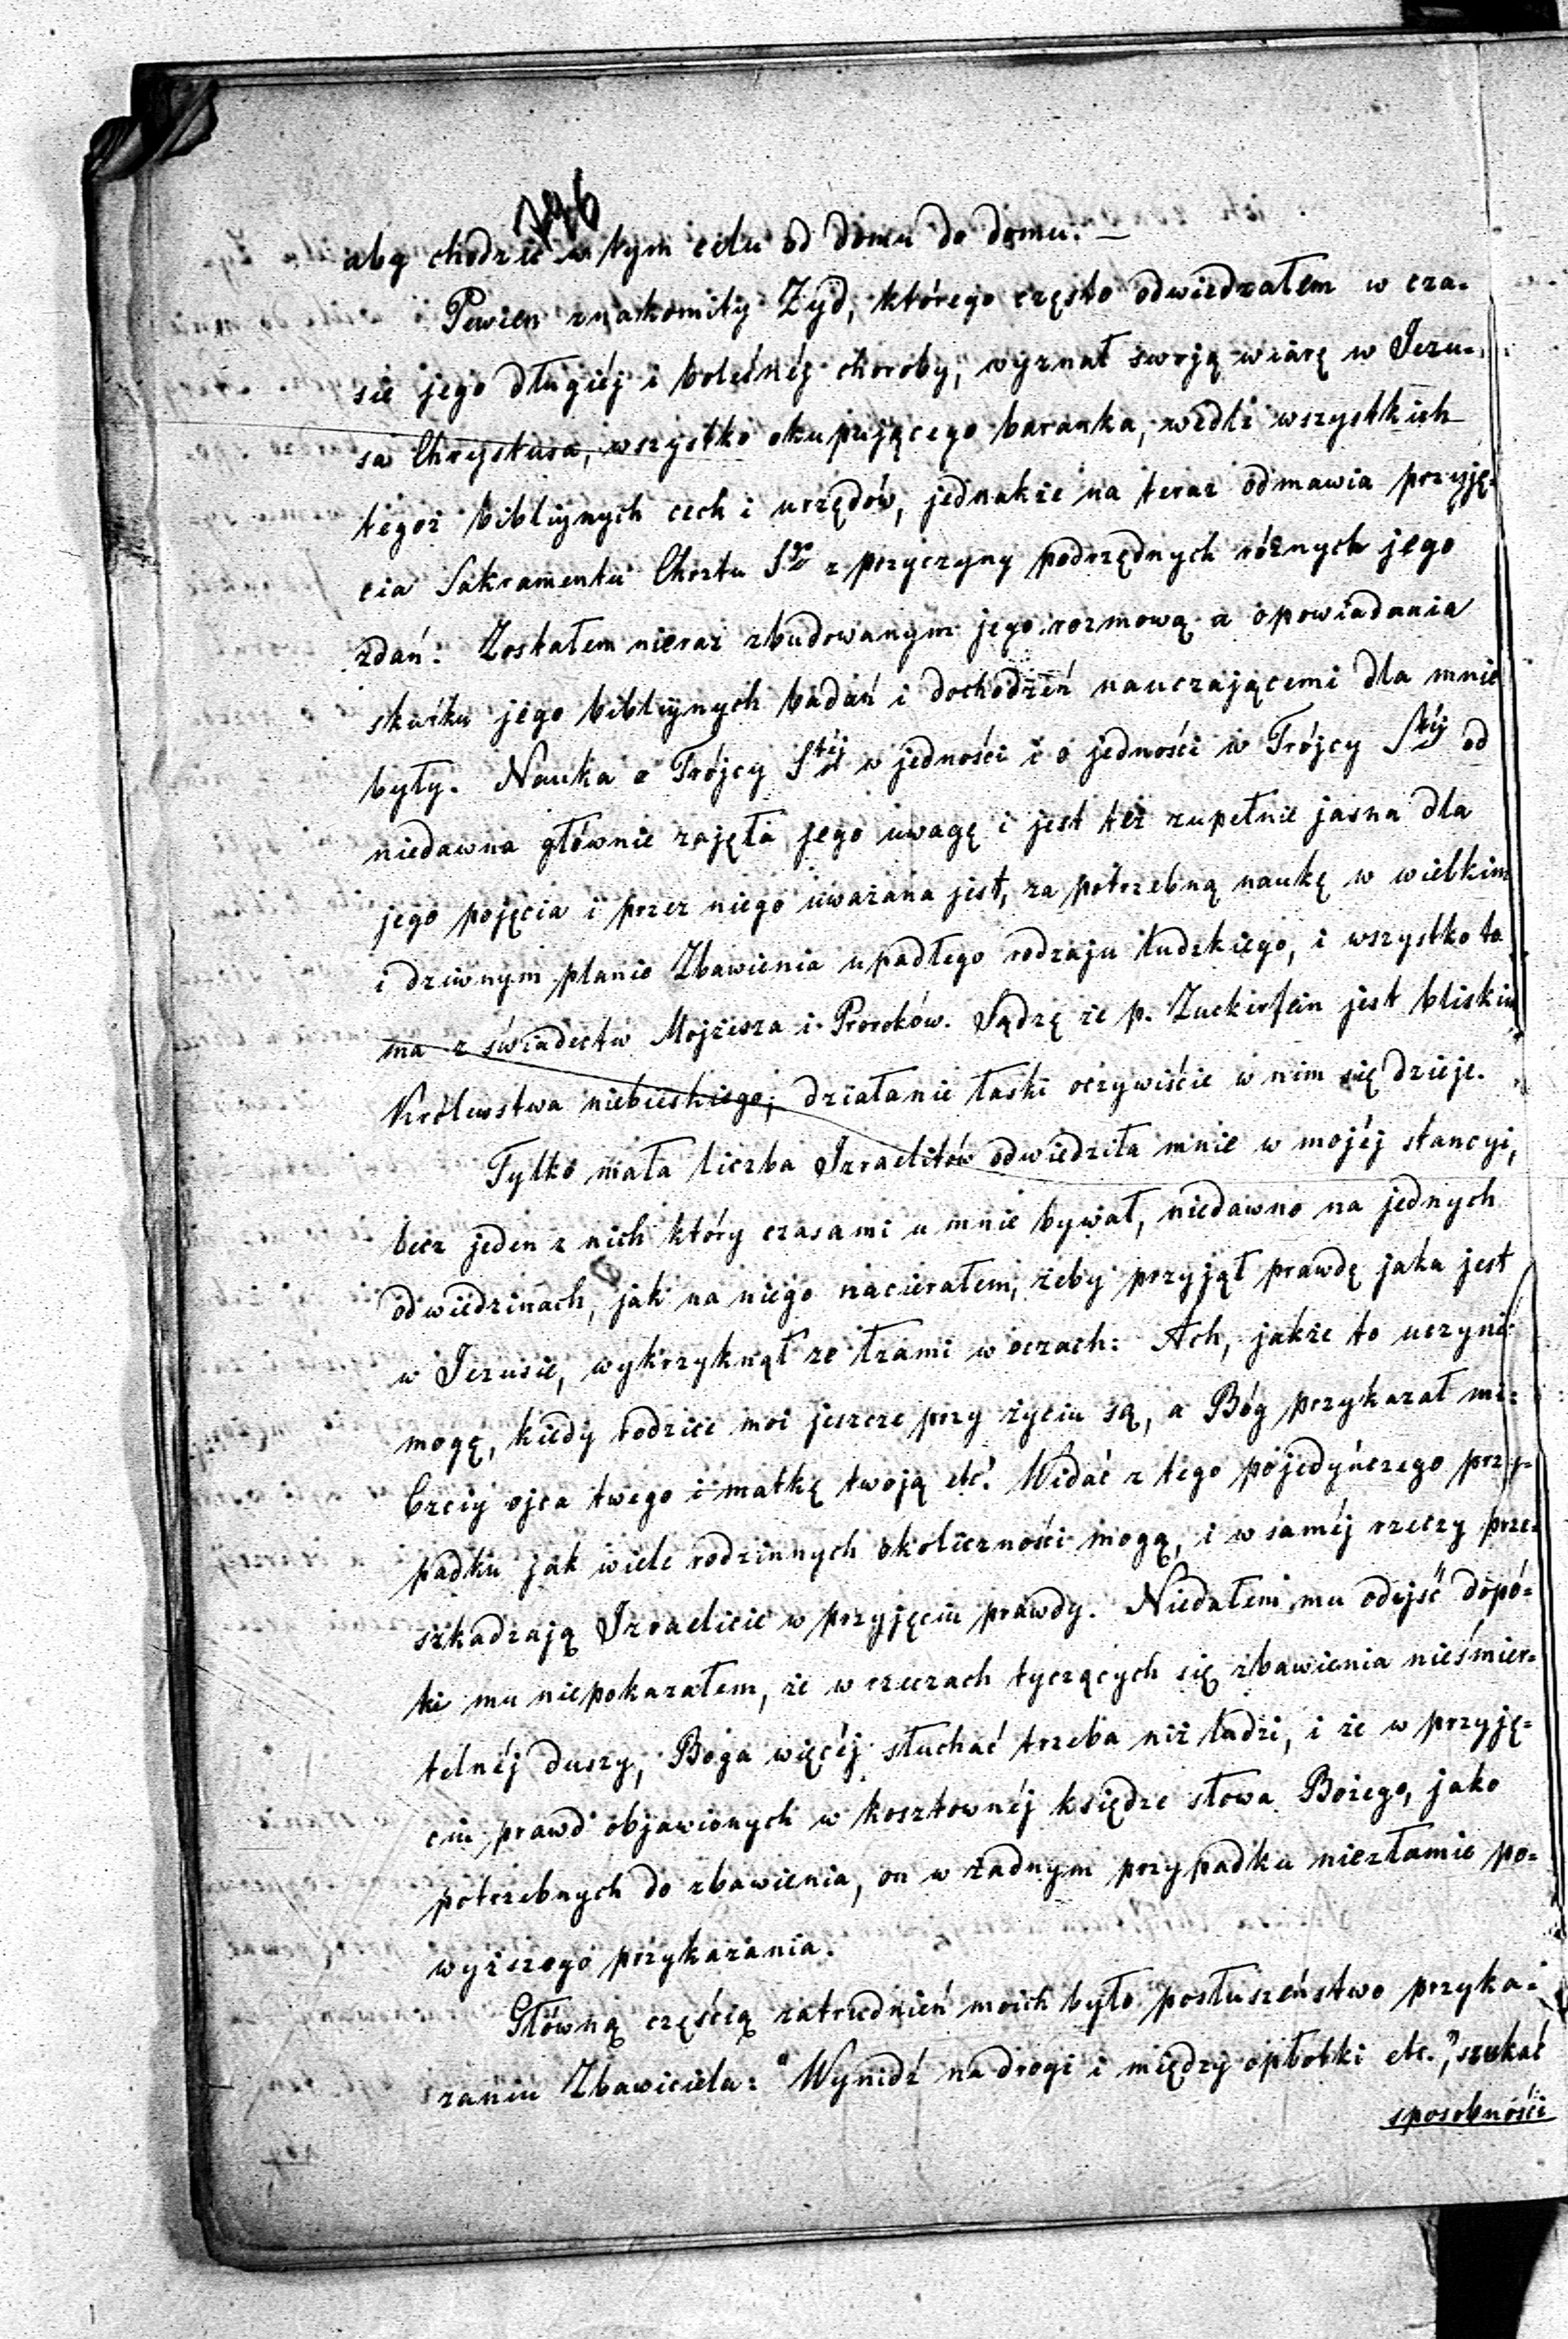 196
aby chodzić w tym celu od domu do domu. —
Pewien znakomity Żyd, którego często odwiedzałem w cza-
sie jego długiéj i boleśnéj choroby, wyznał swoją wiarę w Jezu-
sa Chrystusa, wszystko okupującego baranka, wedle wszystkich
tegoż bibliynych cech i urzędów, jednakże na teraz odmawia przyję-
cia Sakramentu Chrztu Sgo z przyczyny podrzędnych różnych jego
zdań. Zostałem nieraz zbudowanym jego rozmową a opowiadania
skutku jego bibliynych badań i dochodzeń nauczającemi dla mnie
były. Nauka o Trójcy Stéj w jedności i o jedności w Trójcy Stéj od
niedawna głównie zajęła jego uwagę i jest też zupełnie jasna dla
jego pojęcia i przez niego uważana jest, za potrzebną naukę w wielkim
i dziwnym planie Zbawienia upadłego rodzaju ludzkiego, i wszystko to
ma z świadectw Mojżesza i Proroków. Sądzę że p. Zuckerfein jest bliskim
Królewstwa niebieskiego; działanie łaski oczywiście w nim się dzieje.
Tylko mała liczba Izraelitów odwiedziła mnie w mojéj stancyi,
lecz jeden z nich który czasami u mnie bywał, niedawno na jednych
odwiedzinach, jak na niego nacierałem, żeby przyjął prawdę jaka jest
w Jezusie, wykrzyknął ze łzami w oczach: Ach, jakże to uczynić
mogę, kiedy rodzice moi jeszcze przy życiu są, a Bóg przykazał mi:
Czciy ojca twego i matkę twoją etc. Widać z tego pojedyńczego przy-
padku jak wiele rodzinnych okoliczności mogą, i w saméj rzeczy prze-
szkadzają Izraelicie w przyjęciu prawdy. Niedałem mu odejść dopó-
ki mu niepokazałem, że w rzeczach tyczących się zbawienia nieśmier-
telnéj duszy, Boga więcéj słuchać trzeba niż ludzi, i że w przyję-
ciu prawd objawionych w kosztownéj księdze słowa Bożego, jako
potrzebnych do zbawienia, on w żadnym przypadku niezłamie po-
wyższego przykazania.
Główną częścią zatrudnień moich było posłuszeństwo przyka-
zaniu Zbawiciela: "Wynidź na drogi i między opłotki etc.", szukać
sposobności